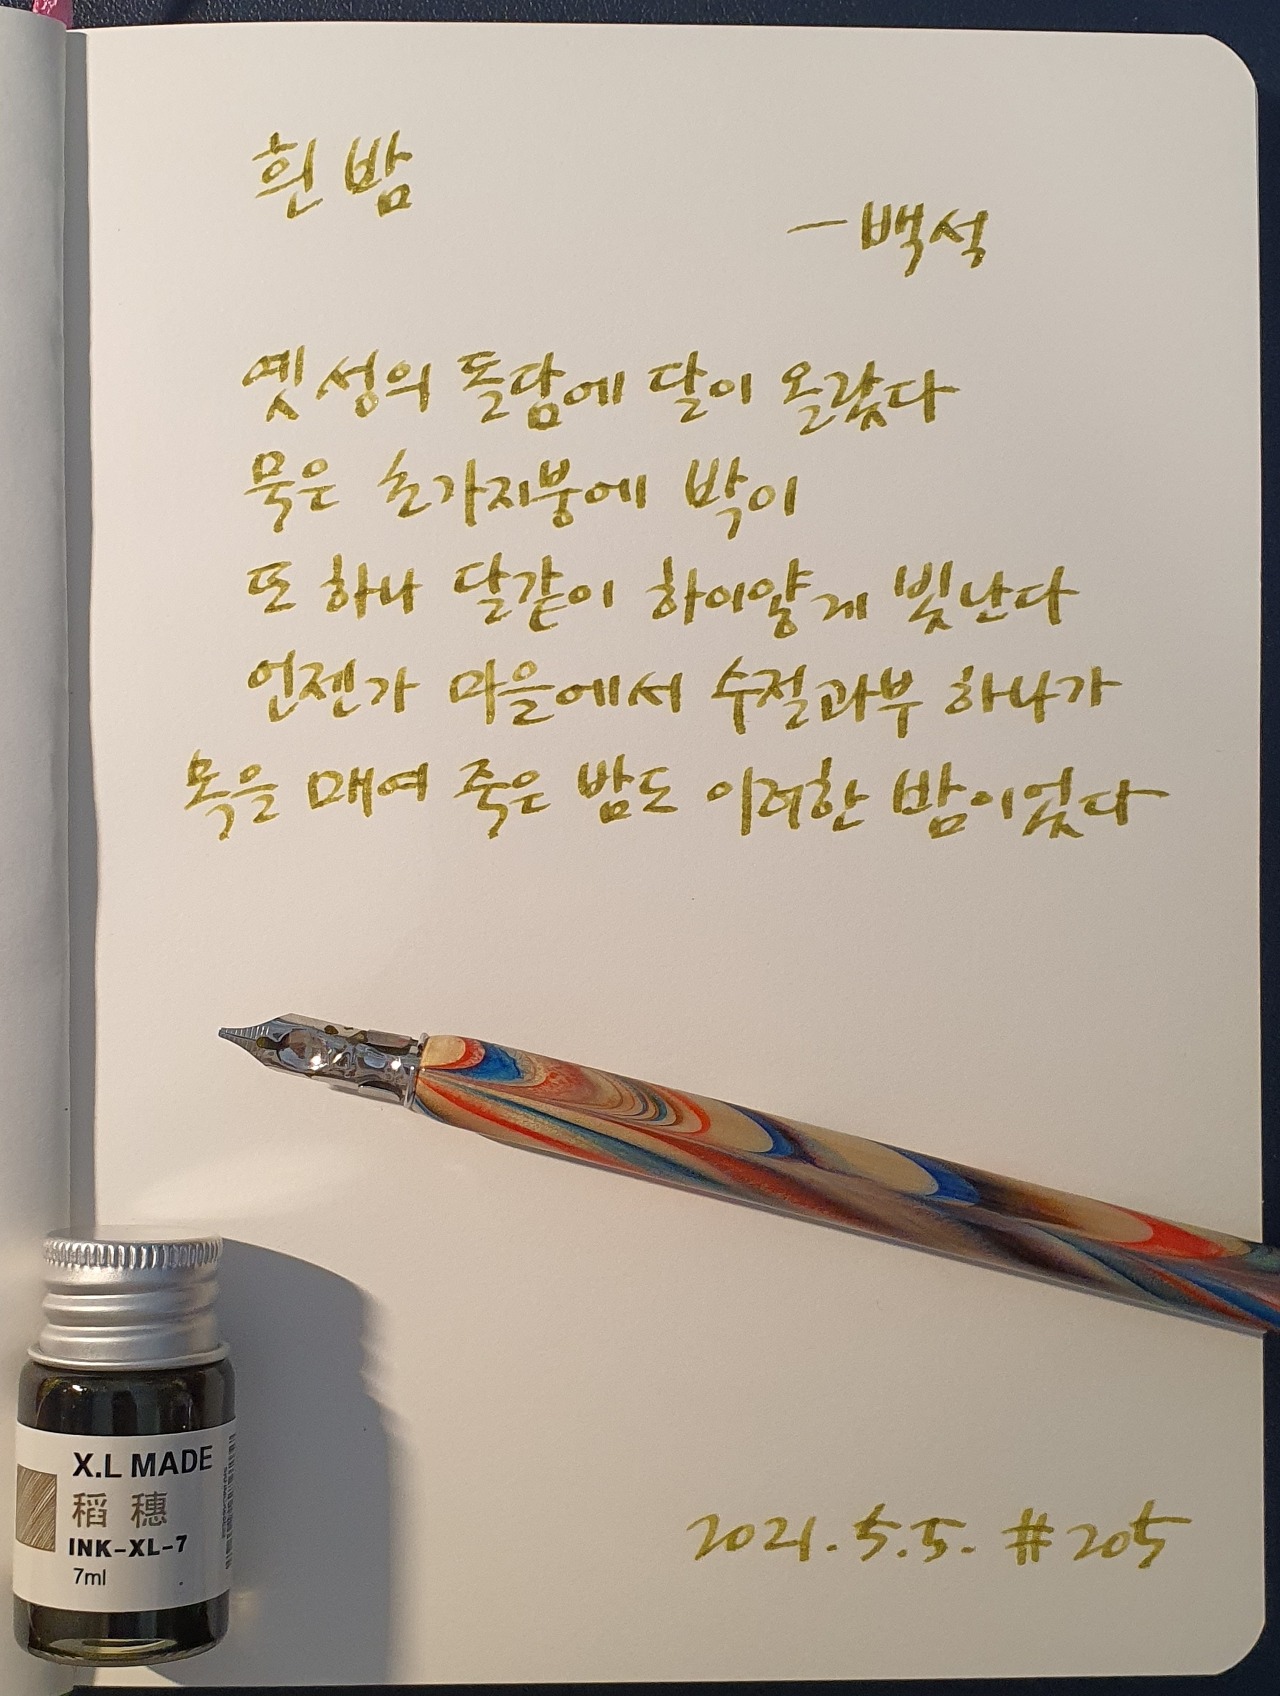 흰 밤
- 백석
옛 성의 돌담에 달이 올랐다
묵은 초가지붕에 박이
또 하나 달같이 하이얗게 빛난다
언젠가 마을에서 수절과부 하나가
목을 매여 죽은 밤도 이러한 밤이었다
X.L MADE
稻穗
INK-XL-7
7ml
2021.5.5. #205